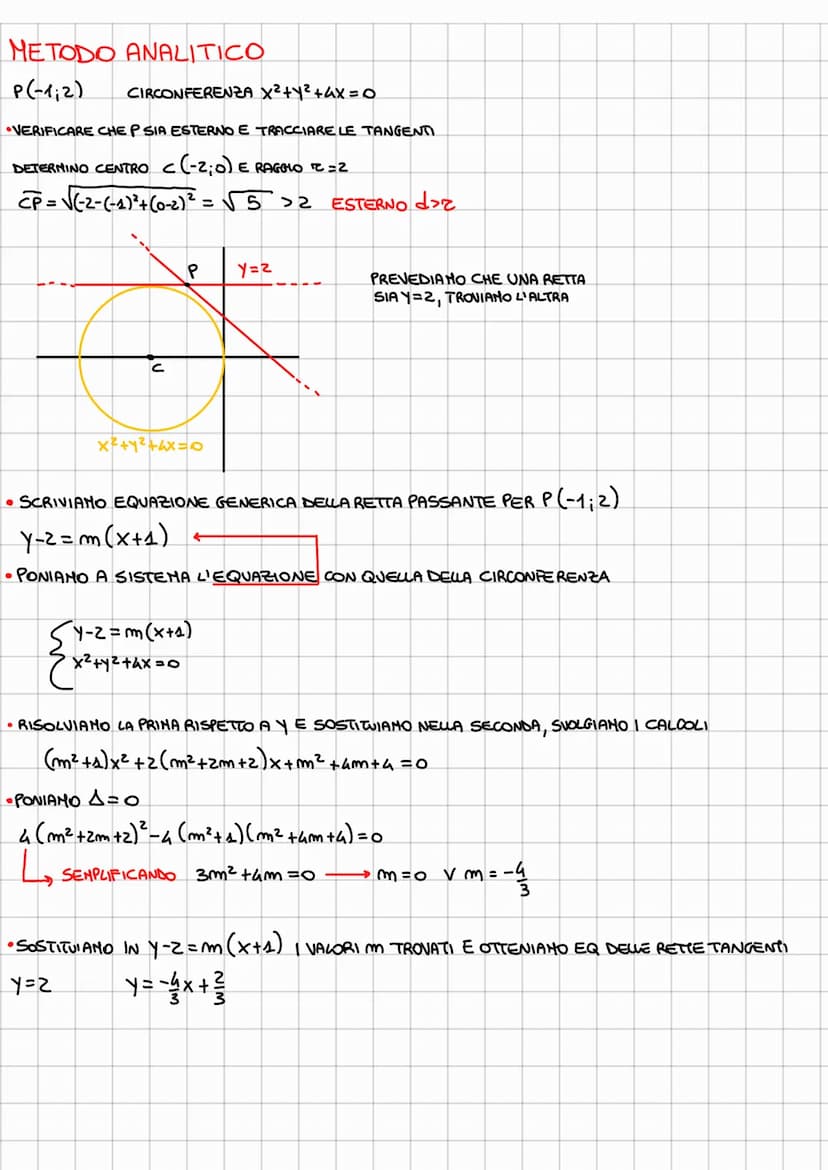 METODO ANALITICO
P(-1;2) CIRCONFERENZA x²+y²+4x=0
•VERIFICARE CHE P SIA ESTERNO E TRACCIARE LE TANGENTI
DETERMINO CENTRO C(-2;0) E RAGGIO r=2
CP = √(-2-(-1)²+(0-2)² = √5 >2 ESTERNO d>r
P y=2
PREVEDIAMO CHE UNA RETTA
SIA y=2, TROVIAMO L'ALTRA
C
x²+y²+4x=0
• SCRIVIAMO EQUAZIONE GENERICA DELLA RETTA PASSANTE PER P(-1;2)
y-2=m(x+1)
• PONIAMO A SISTEMA L'EQUAZIONE CON QUELLA DELLA CIRCONFERENZA
{ y-2=m(x+1)
x²+y²+4x=0
• RISOLVIAMO LA PRIMA RISPETTO A y E SOSTITUIAMO NELLA SECONDA, SVOLGIAMO I CALCOLI
(m²+1)x²+2(m²+2m+2)x+m²+4m+4=0
•PONIAMO Δ=0
4(m²+2m+2)²-4(m²+1)(m²+4m+4)=0
↳ SEMPLIFICANDO 3m²+4m=0 → m=0 ∨ m=-4/3
•SOSTITUIAMO IN y-2=m(x+1) I VALORI m TROVATI E OTTENIAMO EQ DELLE RETTE TANGENTI
y=2 y=-4/3x+2/3